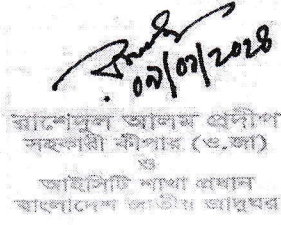 ০৭/০১/২০২৪
রাশেদুল আলম প্রদীপ
সহকারী কীপার (ও.জা)
ও
আইসিটি শাখা প্রধান
বাংলাদেশ জাতীয় জাদুঘর